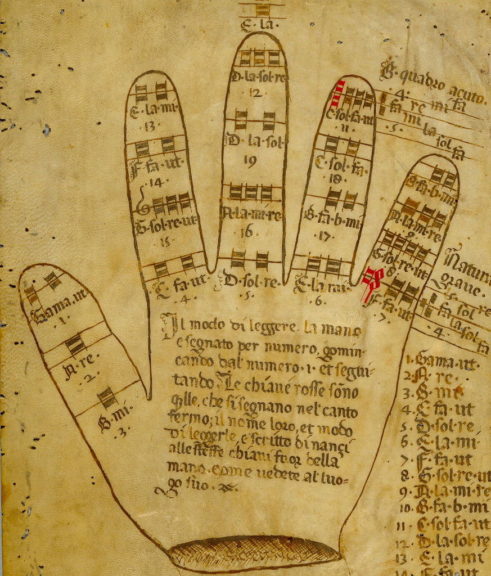 E la
D·la·sol·re
12
E·la·mi
13
C·sol·fa·ut
11
D·la·sol
19
C·sol·fa
18
F·fa·ut
14
A·la·mi·re
16
B·fa·b·mi
17
G·sol·re·ut
15
C·fa·ut
4
D·sol·re
5
E·la·mi
6
B·fa·b·mi
A·la·mi·re
G·sol·re·ut
8
F·fa·ut
7
Gama·ut
1
A·re
2
B·mi
3
B·quadro acuto
4
fa re mi fa
5
mi la sol
fa
Natura
grave
5 sol re
fa sol
fa la sol
fa
4
Il modo di leggere la mano
e segnato per numero, comin
cando dal numero·1· et segui
tando. Le chiave rosse sono
q̃lle, che si segnano nel canto
fermo; il nome loro, et modo
di leggerle, e scritto dinanzi
alle stesse chiavi fuor della
mano. come vedete al luo-
go suo
1·Gama·ut
2·A·re
3·B·mi
4·C·fa·ut
5·D·sol·re
6·E·la·mi
7·F·fa·ut
8·G·sol·re·ut
9·A·la·mi·re
10·B·fa·b·mi
11·C·sol·fa·ut
12·D·la·sol·re
13·E·la·mi
14·F·fa·ut